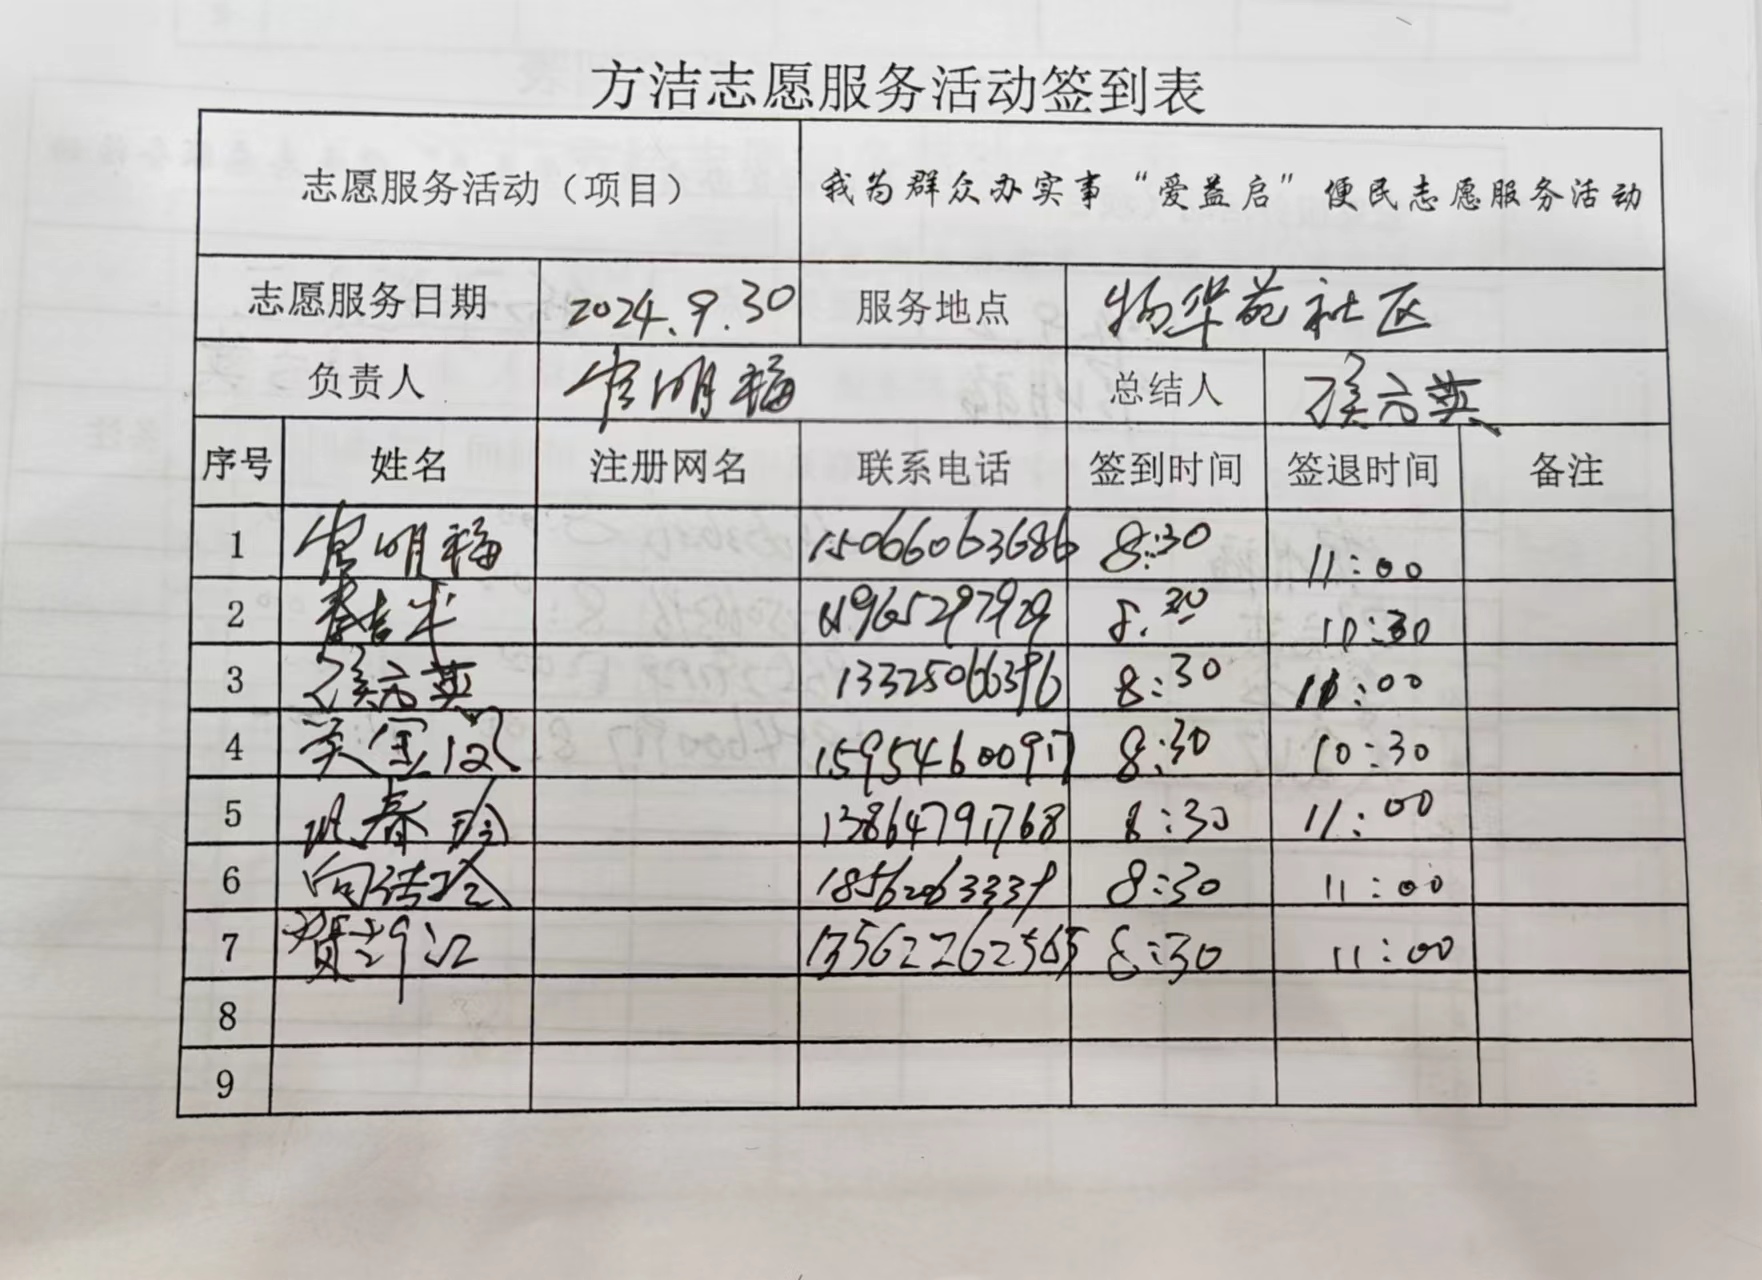 方洁志愿服务活动签到表
志愿服务活动（项目） 我为群众办实事“爱益启”便民志愿服务活动
志愿服务日期 2024.9.30 服务地点 物华苑社区
负责人 明福 总结人 侯方英
序号 姓名 注册网名 联系电话 签到时间 签退时间 备注
1 明福 15066063686 8:30 11:00
2 8:30 10:30
3 侯方英 13325066396 8:30 11:00
4 15954600917 8:30 10:30
5 春玲 13864791768 8:30 11:00
6 向洁玲 18562063339 8:30 11:00
7 贺 江 13562262565 8:30 11:00
8
9